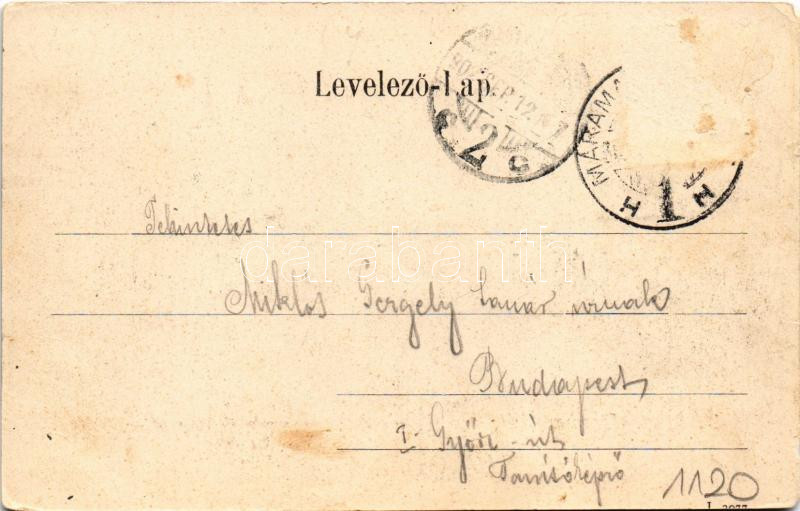 Levelező-Lap.
MÁRAMA
1
H H
Tekintetes
Miklós Gergely tanár úrnak
Budapest
I. Győri-út
Tanítóképző
1120
darabanth